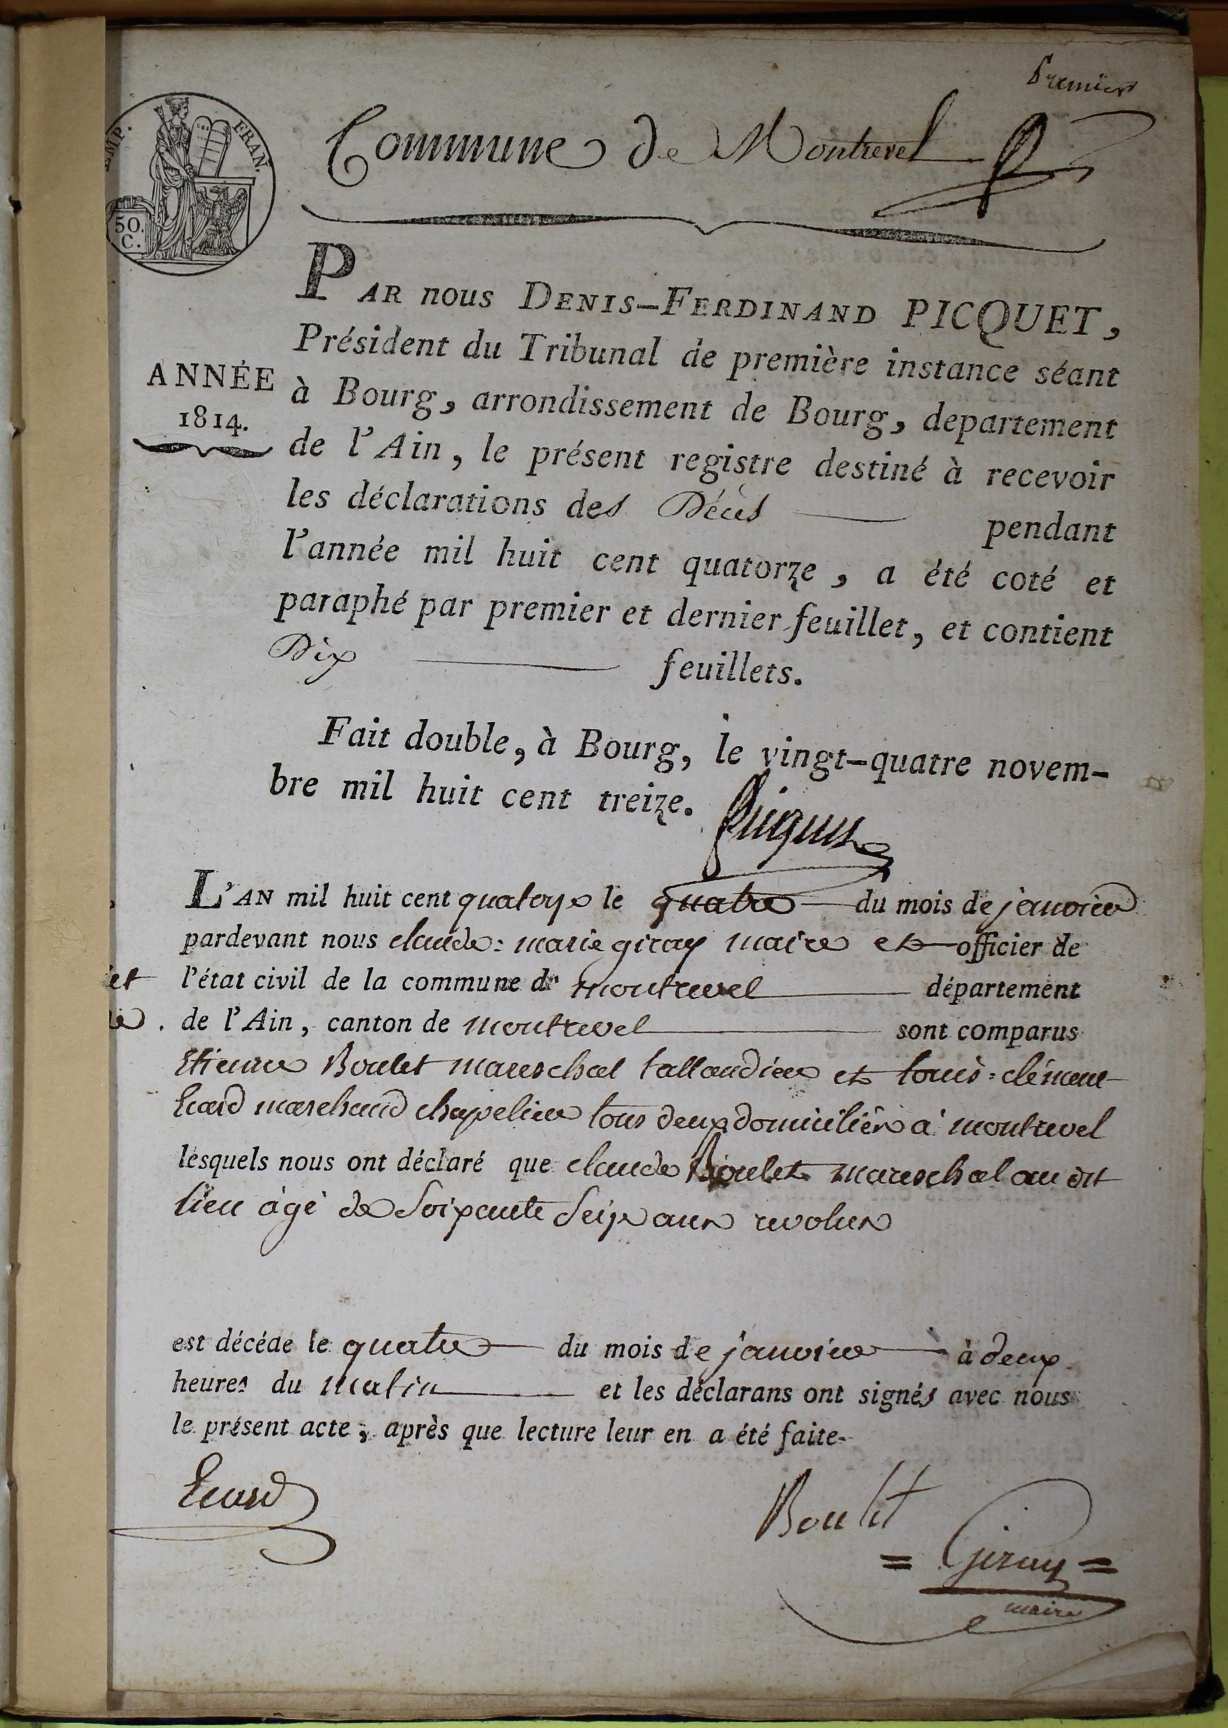 Premier
EMP. FRAN.
50.
C.
Commune de Montrevel
PAR nous DENIS-FERDINAND PICQUET,
Président du Tribunal de première instance séant
ANNÉE
1814.
à Bourg, arrondissement de Bourg, departement
de l'Ain, le présent registre destiné à recevoir
les déclarations des Décès pendant
l'année mil huit cent quatorze, a été coté et
paraphé par premier et dernier feuillet, et contient
Dix feuillets.
Fait double, à Bourg, le vingt-quatre novem-
bre mil huit cent treize. Picquet
L'AN mil huit cent quatorze le quatre du mois de janvier
pardevant nous claude=marie giray maire et officier de
l'état civil de la commune de montrevel département
de l'Ain, canton de montrevel sont comparus
Etienne Boulet mareschal tallandier et louis=clément
Ecard marchand chapelier tous deux domiciliés à montrevel
lesquels nous ont déclaré que claude Boulet mareschal au dit
lieu âgé de soixante seize ans revolus
est décéde le quatre du mois de janvier à deux
heures du matin et les déclarans ont signés avec nous
le présent acte, après que lecture leur en a été faite.
Ecard
Boulet
= Giray =
maire